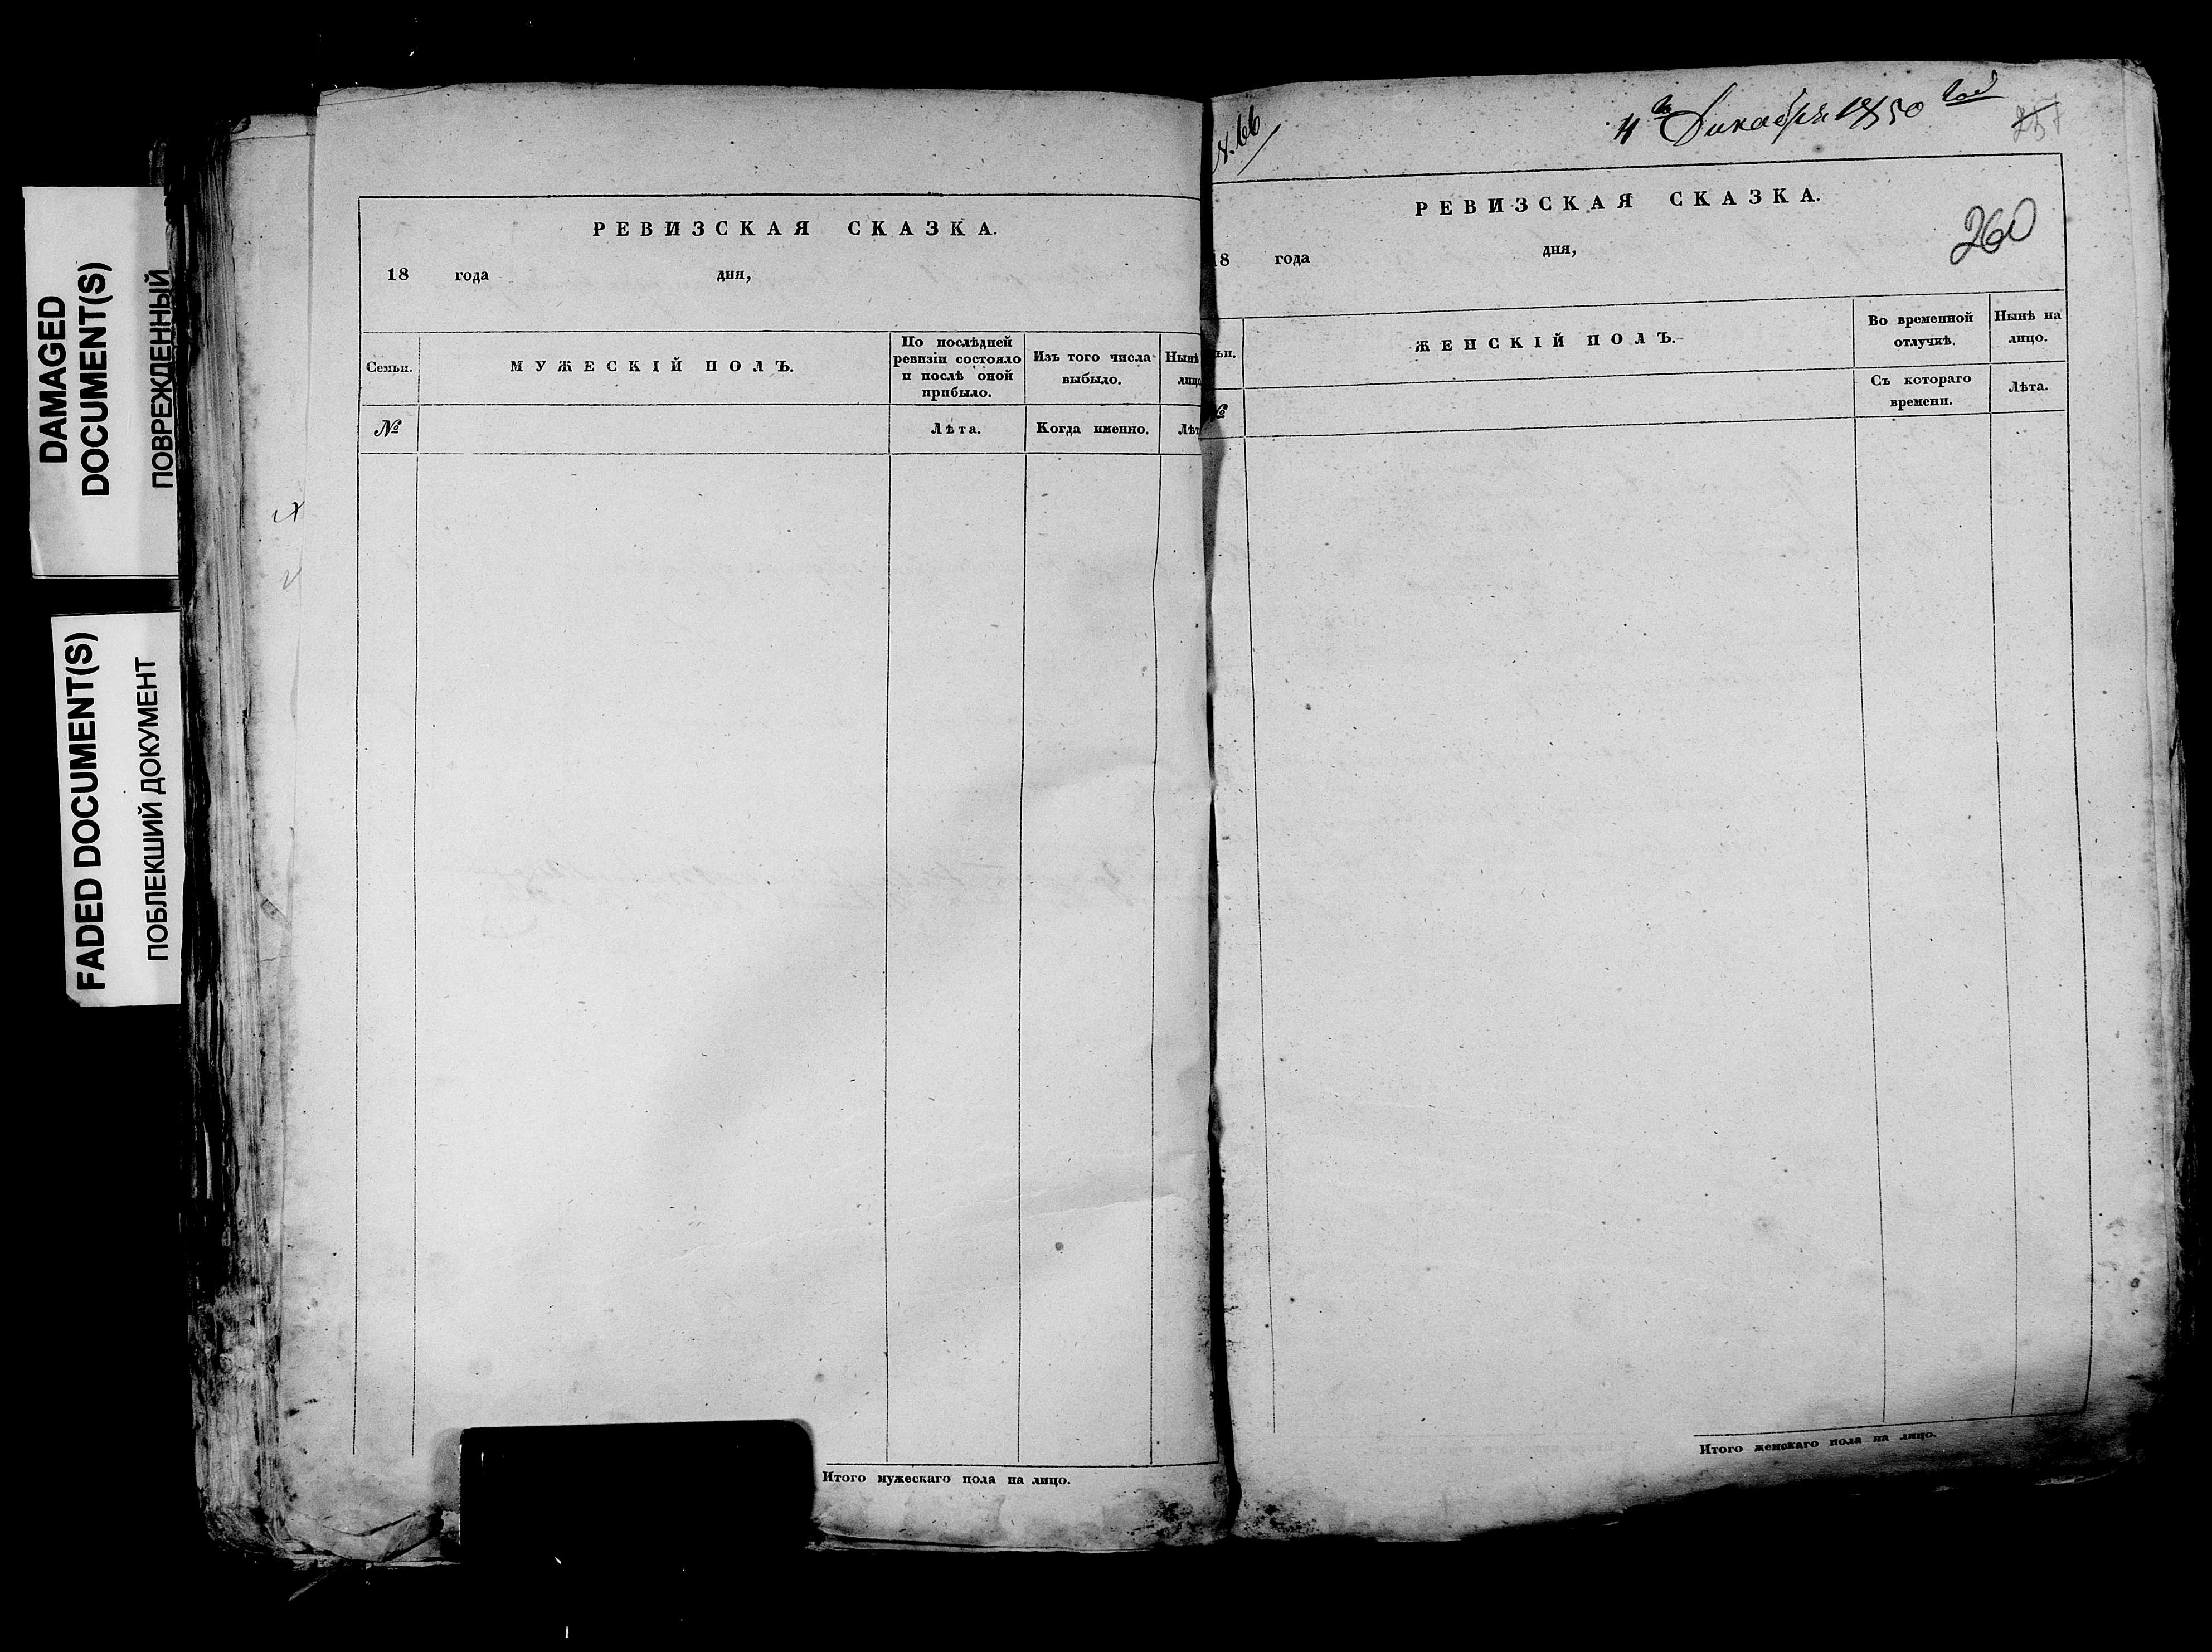 DAMAGED
DOCUMENT(S)
ПОВРЕЖДЕННЫЙ
FADED DOCUMENT(S)
ПОБЛЕКШИЙ ДОКУМЕНТ
РЕВИЗСКАЯ СКАЗКА.
18 года дня,
Семьи. МУЖЕСКІЙ ПОЛЪ. По послѣдней ревизіи состояло и послѣ оной прибыло. Изъ того числа выбыло. Нынѣ лицо
№ Лѣта. Когда именно. Лѣт
Итого мужескаго пола на лицо.
№ 66
4го Декабря 1850 год
257
РЕВИЗСКАЯ СКАЗКА.
260
18 года дня,
ьи. ЖЕНСКІЙ ПОЛЪ. Во временной отлучкѣ. Нынѣ на лицо.
№ Съ котораго времени. Лѣта.
Итого женскаго пола на лицо.